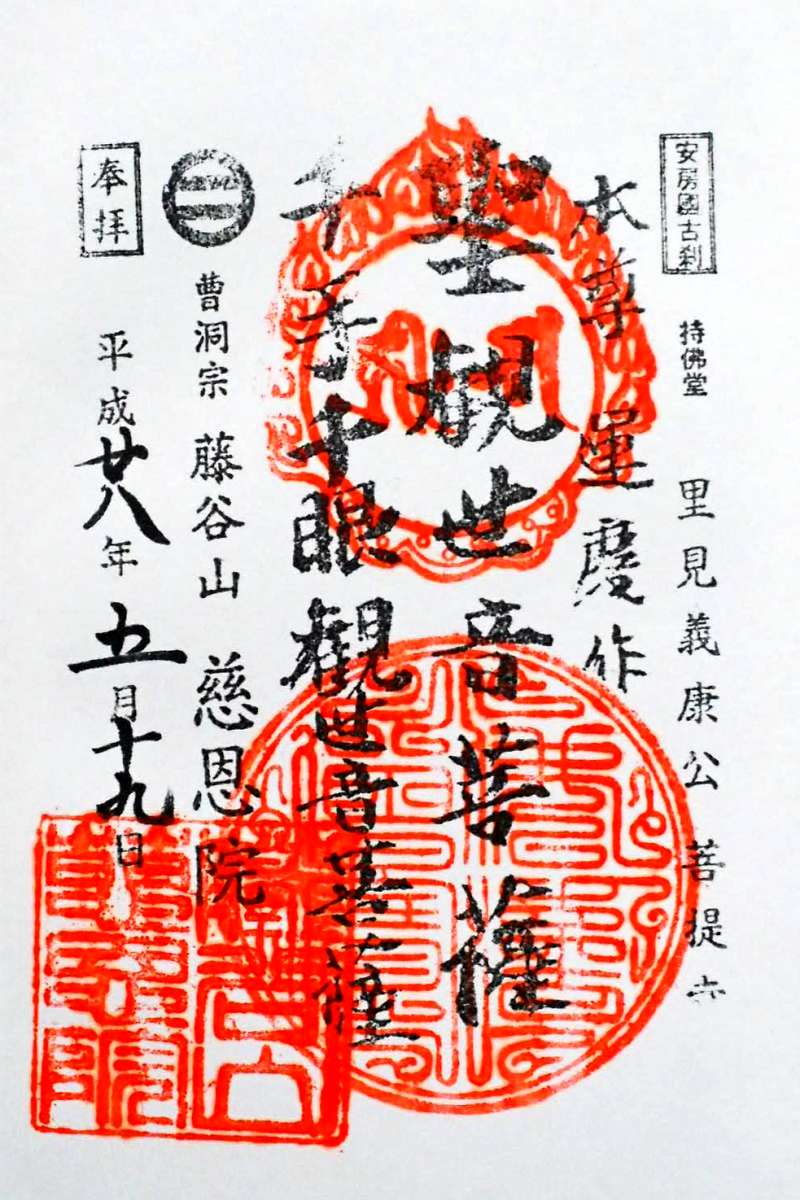 安房國古刹
持佛堂 里見義康公 菩提
本尊 運慶作
聖観世音菩薩
千手千眼観世音菩薩
曹洞宗 藤谷山 慈恩院
奉拝
平成廿八年五月十九日